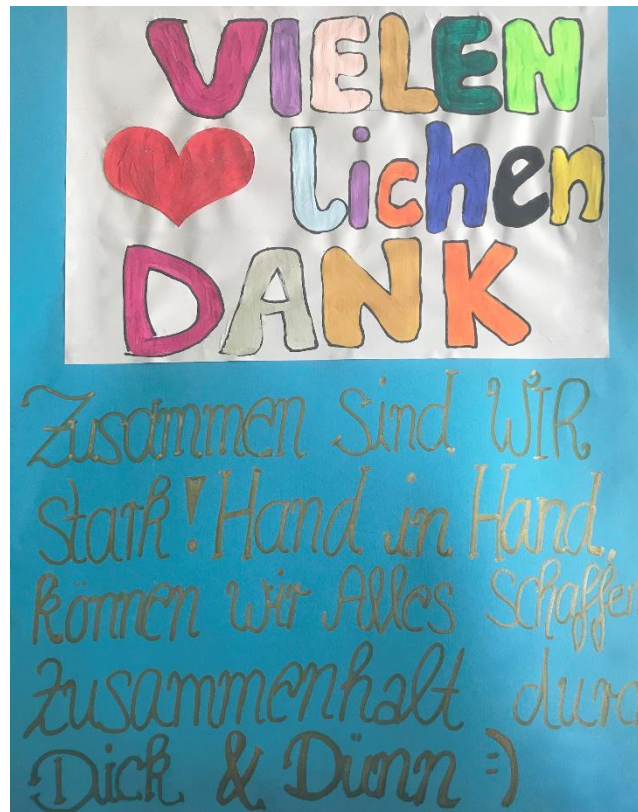 VIELEN
❤lichen
DANK
Zusammen sind WIR
stark! Hand in Hand,
können wir Alles schaffen
Zusammenhalt durc
Dick & Dünn =)